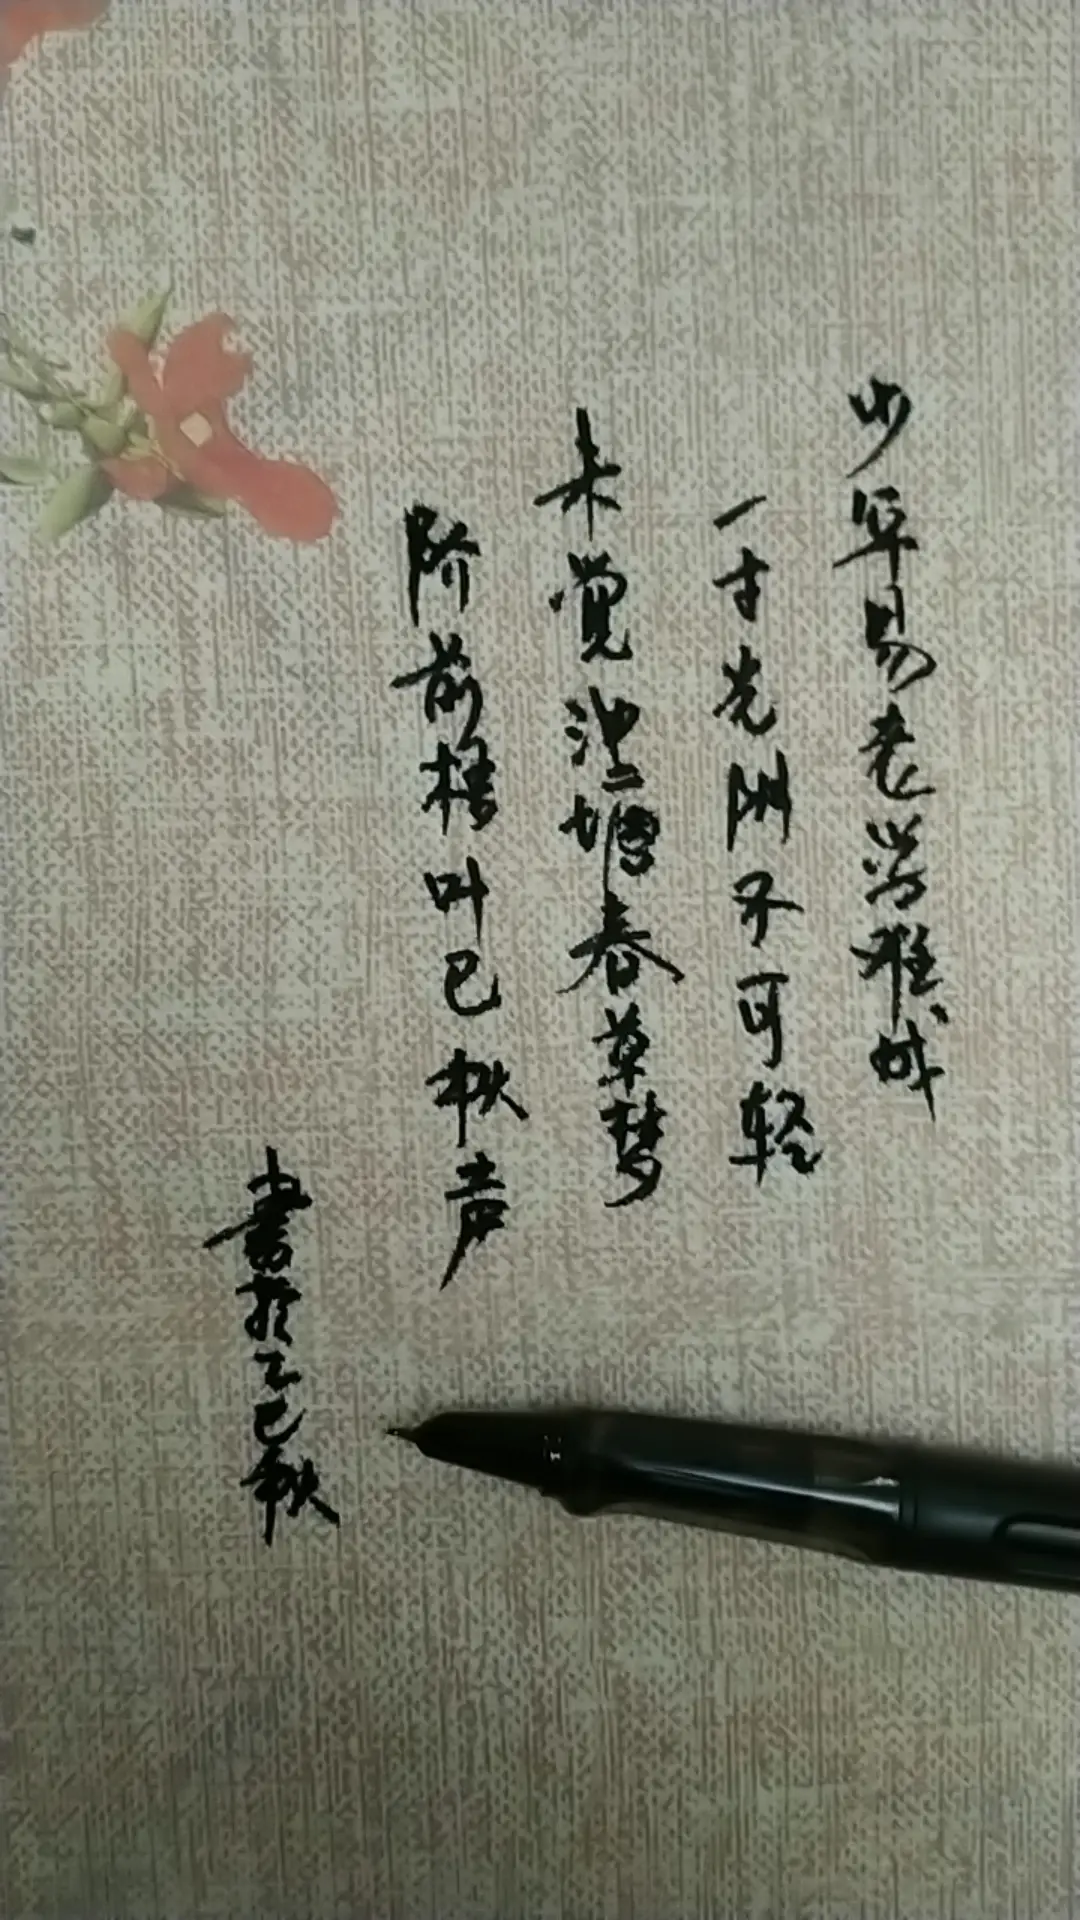 少年易老学难成
一寸光阴不可轻
未觉池塘春草梦
阶前梧叶已秋声
書於乙巳秋